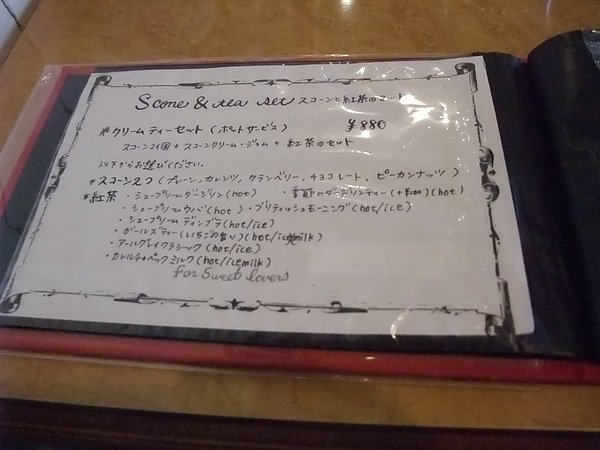 Scone & tea set スコーンと紅茶のセット
*クリームティーセット（ポットサービス） ¥880
スコーン2個+スコーンクリーム・ジャム+紅茶のセット
以下からお選びください。
*スコーン2つ（プレーン、カレンツ、クランベリー、チョコレート、ピーカンナッツ）
*紅茶 ・シュープリームダージリン(hot) ・季節のダージリンティー(+¥100)(hot)
・シュープリームウバ(hot) ・ブリティッシュモーニング(hot/ice)
・シュープリームディンブラ(hot/ice)
・ガールズティー(いちごの香り)(hot/ice/milk)
・アールグレイクラシック(hot/ice)
・カレルチャペックミルク(hot/ice/milk)
for Sweet lovers